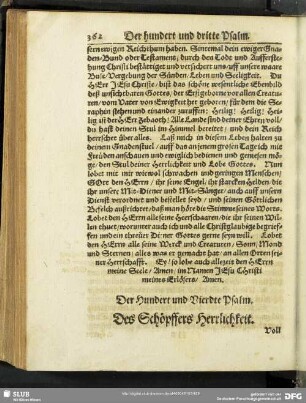 362 Der hundert und dritte Psalm.
sern ewigen Reichthum haben. Sintemal dein ewiger Gna-
den-Bund oder Testament, durch des Todt und Aufferste-
hung Christi bestättiget und versichert uns/ auff unsere waare
Buß/ Vergebung der Sünden, Leben und Seeligkeit. Du
HErr JEsu Christe, bist das schöne wesentliche Ebenbild
deß unsichtbaren Gottes, der Erstgeborne vor allen Creatu-
ren/ vom Vater von Ewigkeit her geboren/ für dem die Se-
raphin stehen und einander zuruffen: Heilig: Heilig: Hei-
lig ist der HErr Zebaoth: Alle Lande sind deiner Ehren voll/
du hast deinen Stul im Himmel bereitet/ und dein Reich
herrschet über alles. Laß mich in diesem Leben halten zu
deinem Gnadenstuel/ auff daß an jenem grossen Tage ich mit
Freuden anschauen und ewiglich bedienen und geniessen mö-
ge/ den Stul deiner Herrligkeit und Lobe Gottes. Nun
lobet mit mir wiewol schwachen und geringen Menschen/
GOtt den HErrn/ ihr seine Engel/ ihr starcken Helden/ die
ihr unsere Mit-Diener und Mit-Sänger/ auch auff unsern
Dienst verordnet und bestellet seyd/ und seinen Göttlichen
Befelch außrichtet/ daß man höre die Stimme seines Worts.
Lobet den HErrn alle seine Heerschaaren/ die ihr seinen Wil-
len thuet/ worunter auch ich und alle Christglaubige begriffen
und dein threuer Diener Gottes gerne seyn will. Lobet
den HErrn alle seine Werck und Creaturen/ Sonn/ Mond
und Sternen/ alles was er gemacht hat/ an allen Orten sei-
ner Herrschafft. Ey/ so lobe auch allezeit den HErrn
meine Seele/ Amen/ im Namen JEsu Christi
meines Erlösers/ Amen.
Der Hundert und Vierdte Psalm.
Des Schöpffers Herrlichkeit.
Voll